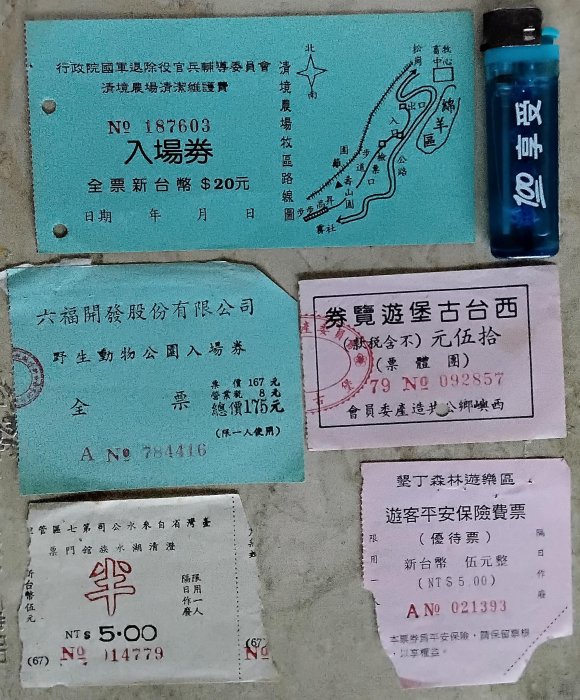 行政院國軍退除役官兵輔導委員會
清境農場清潔維護費
Nº 187603
入場券
全票新台幣 $20元
日期　年　月　日
清境農場牧區路線圖
北
南
松崗
畜牧中心
綿羊區
出口
入口
檢票口
步道
公路
圍籬
壽山園
步步高昇
霧社
100享受
六福開發股份有限公司
野生動物公園入場券
全　票
票價 167 元
營業稅 8 元
總價175元
(限一人使用)
A Nº 784416
券覽遊堡古台西
(獻稅含不) 元伍拾
(票體團)
79 Nº 092857
會員委產造共公鄉嶼西
臺灣省自來水公司第七區管
票門館族水湖清澄
新台幣伍元
半
隔日作廢
限用一人
NT$ 5.00
(67) Nº 014779
(67)
Nº
墾丁森林遊樂區
遊客平安保險費票
(優待票)
新台幣 伍元整
(NT$5.00)
限用一
隔日作廢
A Nº 021393
本票券為平安保險，請保留票根
以享權益。